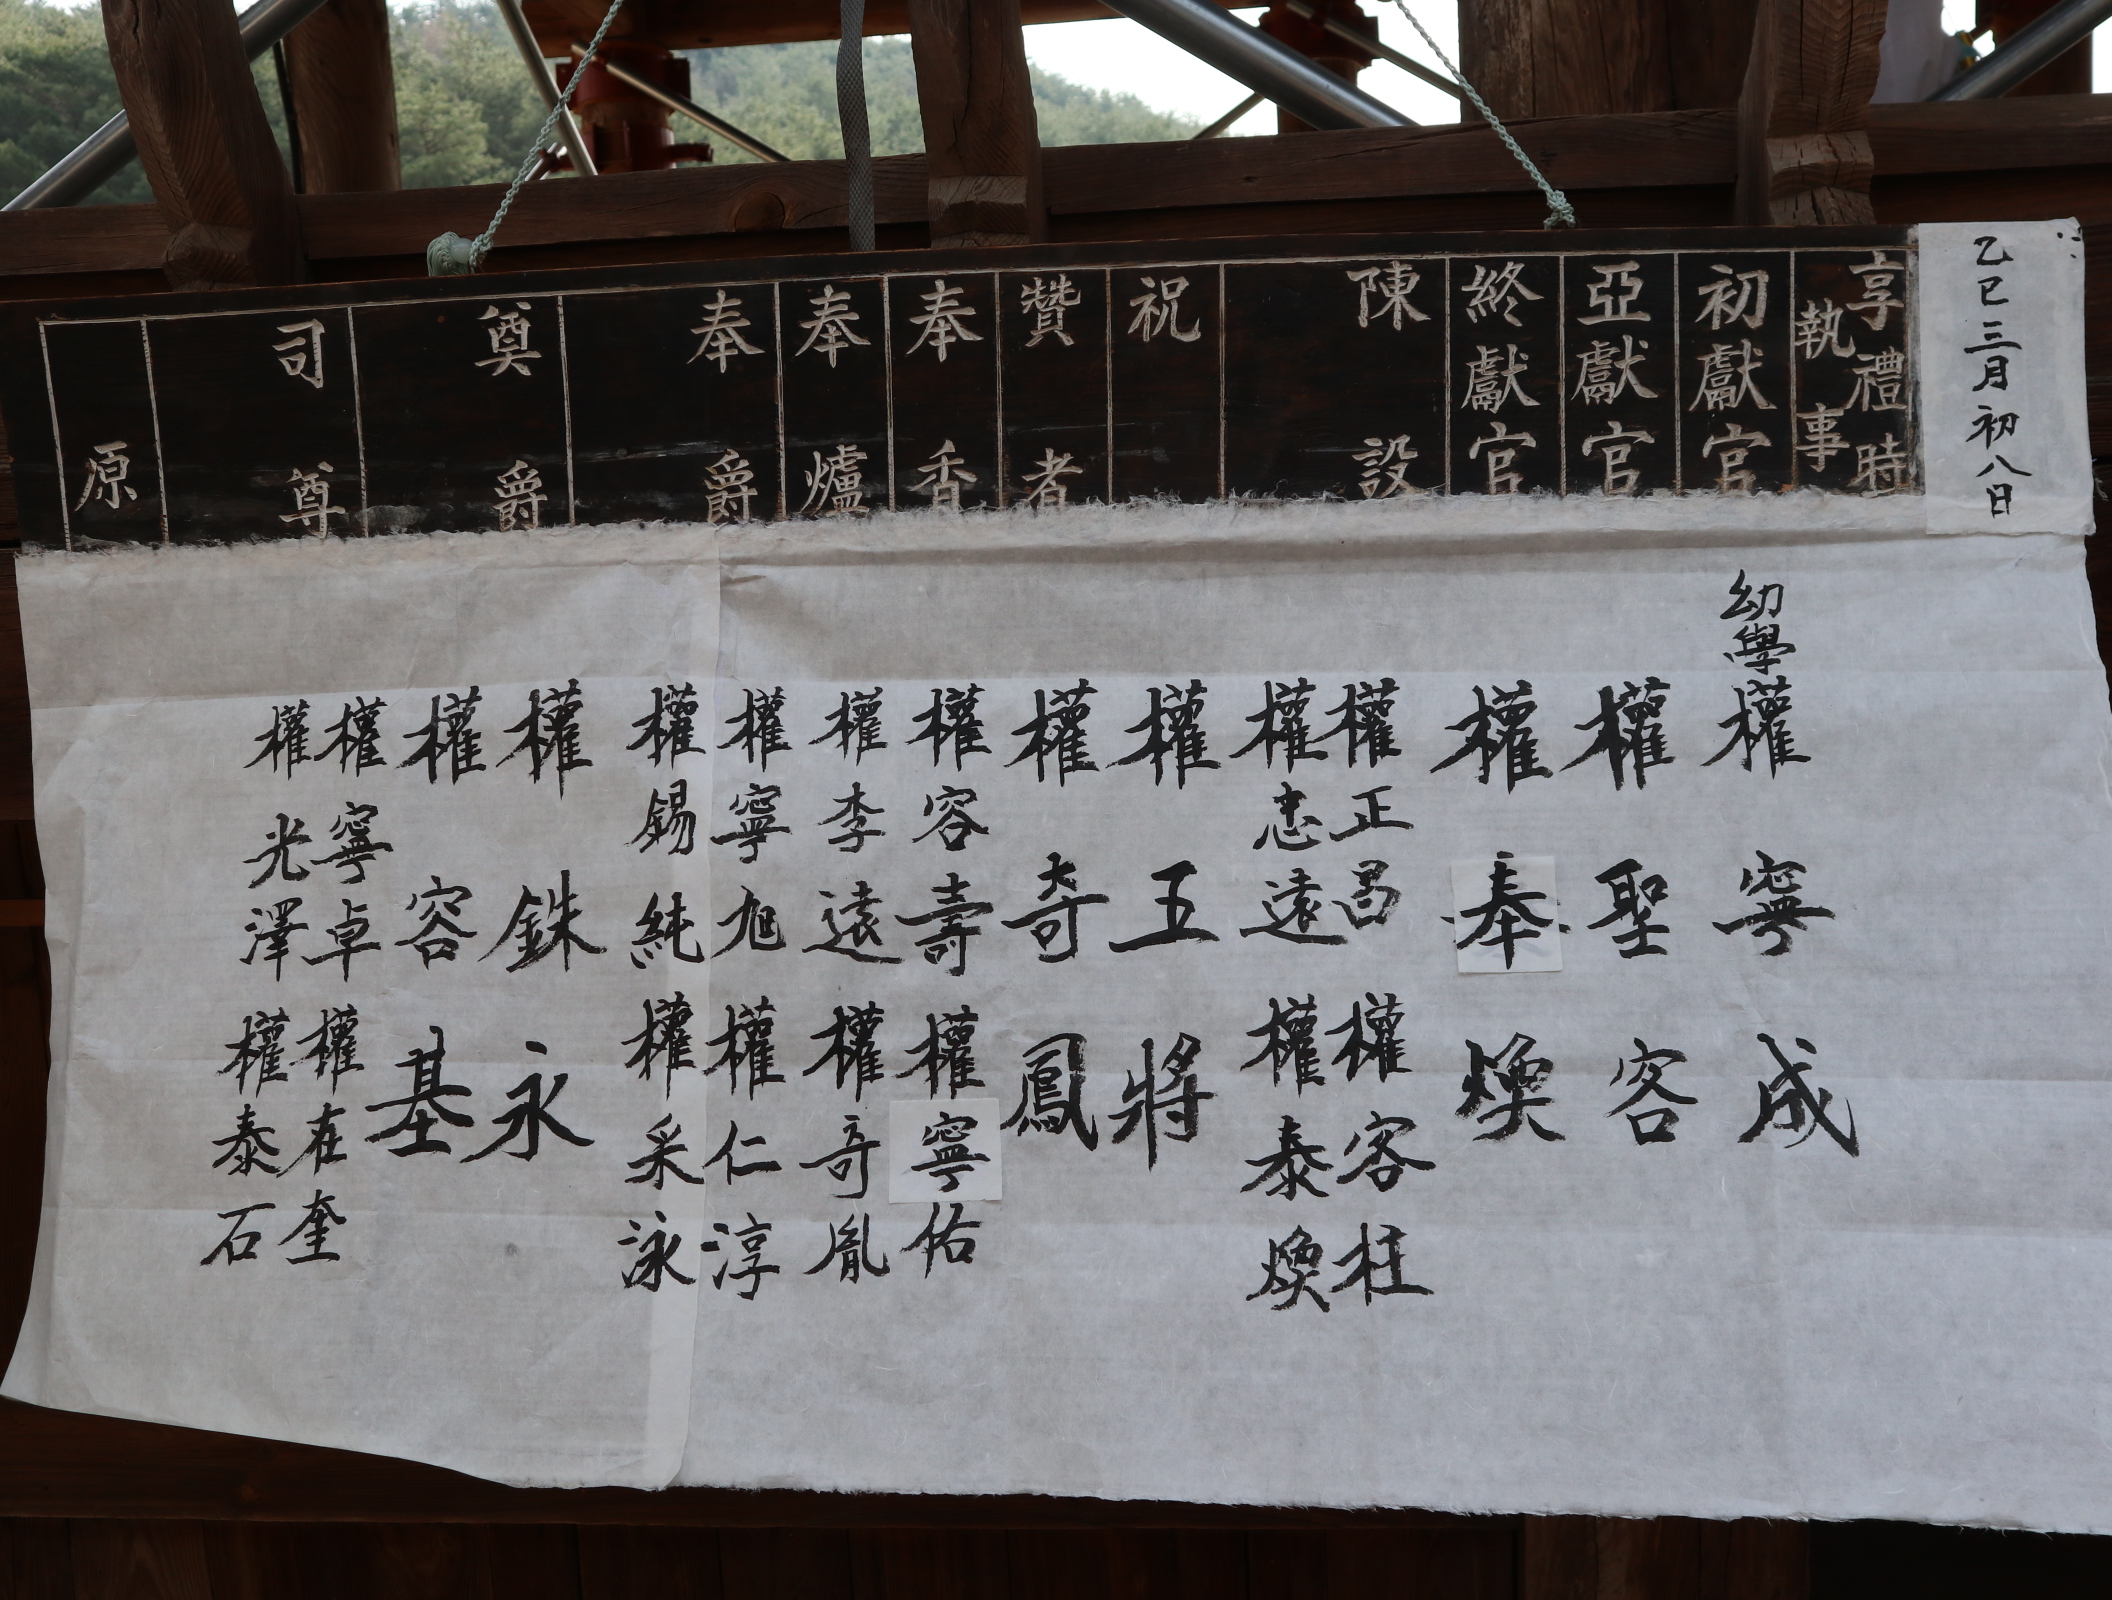 乙巳三月初八日
享禮時
執事
初獻官
亞獻官
終獻官
陳設
祝
贊者
奉香
奉爐
奉爵
奠爵
司尊
原
幼學權寧成
權聖容
權奉煥
權正昌 權容柱
權忠遠 權泰煥
權五將
權奇鳳
權容壽 權寧佑
權李遠 權奇胤
權寧旭 權仁淳
權錫純 權采泳
權銖永
權容基
權寧卓 權在奎
權光澤 權泰石